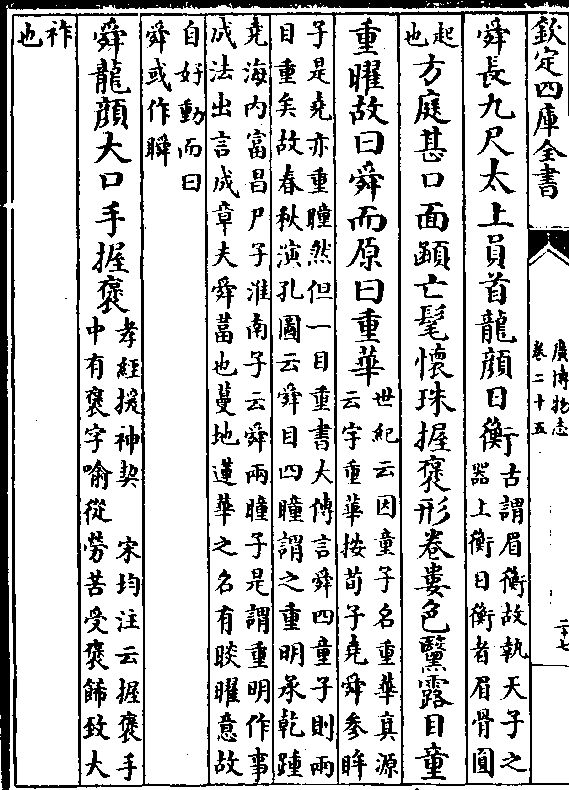 欽定四庫全書
廣博物志
卷二十五
二十七
舜長九尺太上員首龍顔日衡古謂眉衡故執天子之
器上衡日衡者眉骨圓
起
也方庭甚口面顄亡髦懷珠握褒形卷婁色黳露目童
重曜故曰舜而原曰重華世紀云因童子名重華真源
云字重華按荀子堯舜参眸
子是堯亦重瞳然但一目重書大傳言舜四童子則兩
目重矣故春秋演孔圖云舜目四瞳謂之重明承乾踵
堯海内富昌尸子淮南子云舜兩瞳子是謂重明作事
成法出言成章夫舜葍也蔓地蓮華之名有睒曜意故
自好動而曰
舜或作瞬
舜龍顔大口手握褒孝經援神契　宋均注云握褒手
中有褒字喻從勞苦受褒飾致大
祚
也